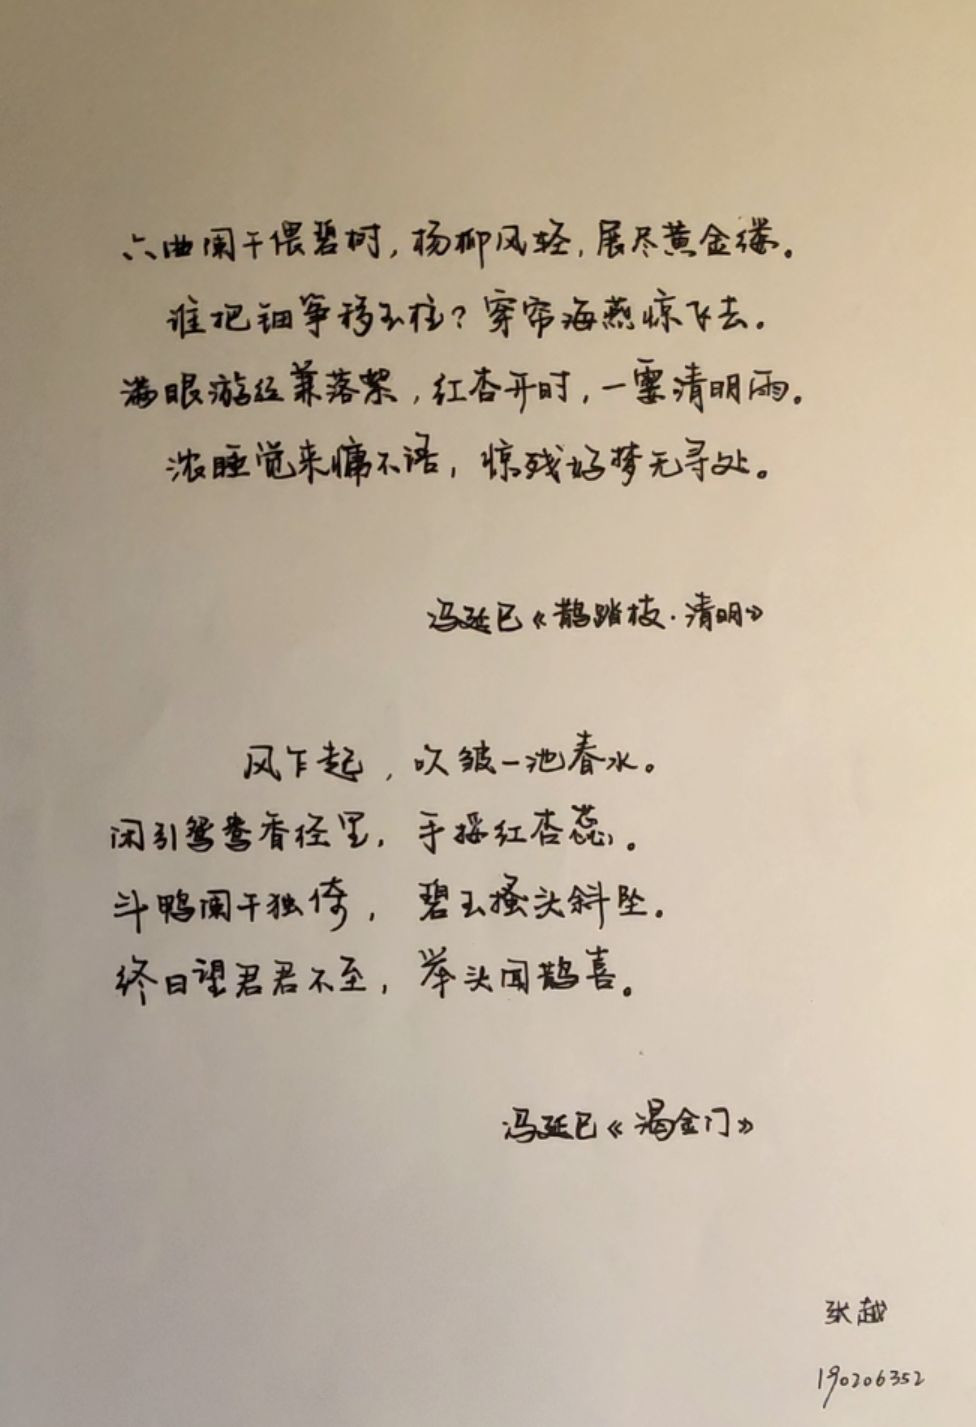 六曲阑干偎碧树，杨柳风轻，展尽黄金缕。
谁把钿筝移玉柱？穿帘海燕惊飞去。
满眼游丝兼落絮，红杏开时，一霎清明雨。
浓睡觉来慵不语，惊残好梦无寻处。
冯延巳《鹊踏枝·清明》
风乍起，吹皱一池春水。
闲引鸳鸯香径里，手挼红杏蕊。
斗鸭阑干独倚，碧玉搔头斜坠。
终日望君君不至，举头闻鹊喜。
冯延巳《谒金门》
张越
190206352